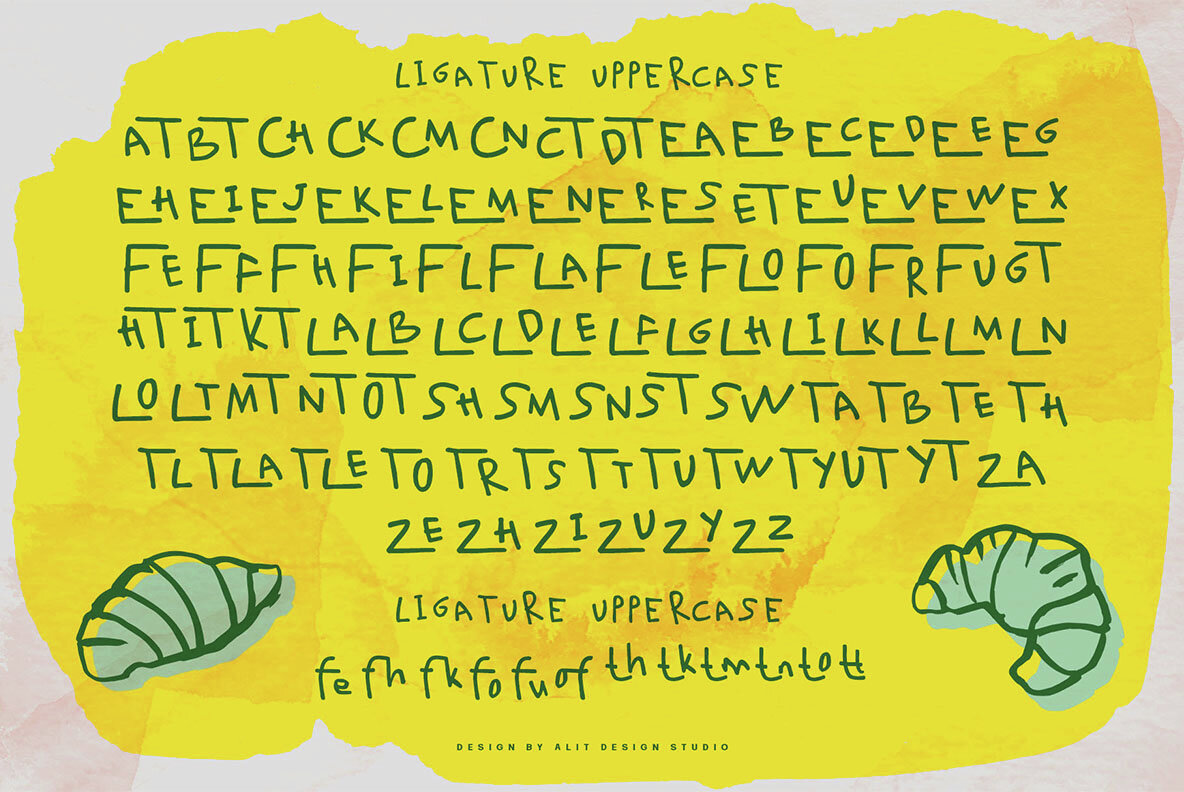 LIGATURE UPPERCASE
AT BT CH CK CM CN CT DT EA EB EC ED EE EG
EH EI EJ EK EL EM EN ER ES ET EU EV EW EX
FE FF FH FI FL FLA FLE FLO FO FR FU GT
HT IT KT LA LB LC LD LE LF LG LH LI LK LL LM LN
LO LT MT NT OT SH SM SN ST SW TA TB TE TH
TL TLA TLE TO TR TS TT TU TW TY UT YT ZA
ZE ZH ZI ZU ZY ZZ
LIGATURE UPPERCASE
fe fh fk fo fu of th tk tm tn to tt
DESIGN BY ALIT DESIGN STUDIO